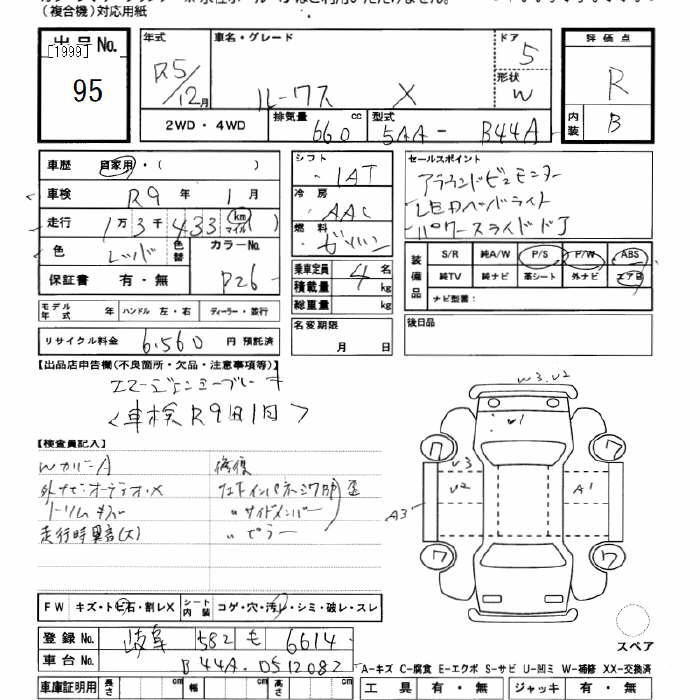 (複合機)対応用紙
出品No.
[1999]
95
年式 R5/12月
車名・グレード ルークス X
ドア 5
形状 W
評価点 R
内装 B
2WD・4WD
排気量 660 cc
型式 5AA- B44A
車歴 自家用・( )
車検 R9 年 1 月
走行 1万3千433 km マイル
色 レッド 色替 カラーNo. P26
保証書 有・無
シフト IAT
冷房 AAC
燃料 ガソリン
乗車定員 4 名
積載量 kg
総重量 kg
セールスポイント
アラウンドビューモニター
LEDヘッドライト
パワースライドドア
装備品 S/R 純A/W P/S P/W ABS
純TV 純ナビ 革シート 外ナビ エアB
ナビ型番:
モデル年式 年 ハンドル 左・右 ディーラー・並行
リサイクル料金 6,560 円 預託済
名変期限 月 日
後日品
【出品店申告欄(不良箇所・欠品・注意事項等)】
エマージェンシーブレーキ
<車検R9年1月>
【検査員記入】
WカバーA 修復
外ナビ・オーディオ・X
トリムキズ 〃サイドメンバー
走行時異音(大) 〃ピラー
W3.U2
W1
U3
U2
A1
A3
ワ
ワ
ワ
ワ
スペア
FW キズ・トビ石・割レX シート内装 コゲ・穴・汚レ・シミ・破レ・スレ
登録No. 岐阜 582 も 6614
車台No. B44A-0512087
A-キズ C-腐食 E-エクボ S-サビ U-凹ミ W-補修 XX-交換済
車庫証明用 長さ cm 幅 cm 高さ cm 工具 有・無 ジャッキ 有・無